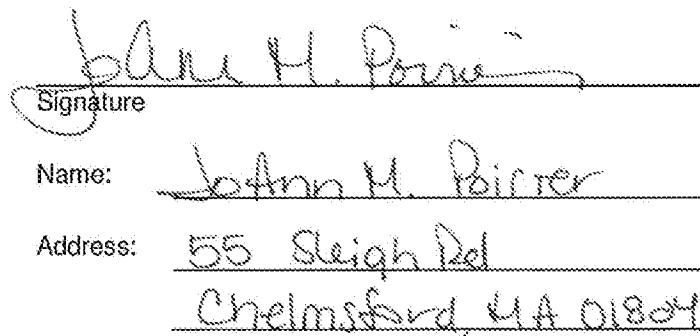 JoAnn M. Poirier
Signature
Name: JoAnn M. Poirier
Address: 55 Sleigh Rd
Chelmsford, MA 01804